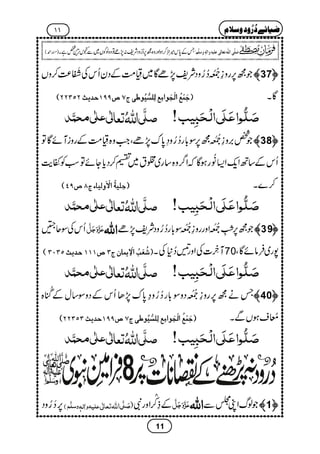 ضیائے دُرُود وسلام
۱۱
﴿37﴾ جو مجھ پر روزِ جُمُعہ دُرُود شریف پڑھے گا میں قِیامت کے دن اُس کی شفاعت کروں
گا۔ (جَمْعُ الْجَوامِع لِلسُّیُوطی ج۷ ص۱۹۹ حدیث ۲۲۳۵۲)
صَلُّوا عَلَی الْحَبِیب ! صلَّی اللہُ تعالیٰ علیٰ محمَّد
﴿38﴾ جو شخص بروزِ جُمُعہ مجھ پر سو بار دُرُودِ پاک پڑھے، جب وہ قیامت کے روز آئے گا تو
اُس کے ساتھ ایک ایسا نور ہوگا کہ اگر وہ ساری مخلوق میں تقسیم کر دیا جائے تو سب کو کفایت
کرے۔ (حِلیۃُ الْاولیاء ج۸ ص۴۹)
صَلُّوا عَلَی الْحَبِیب ! صلَّی اللہُ تعالیٰ علیٰ محمَّد
﴿39﴾ جو مجھ پر شبِ جُمُعہ اور روزِ جُمُعہ سو بار دُرُود شریف پڑھے اللہ عَزَّوَجَلَّ اُس کی سو حاجتیں
پوری فرمائے گا، 70 آخِرت کی اور تیس دُنیا کی۔ (شُعَبُ الْاِیمان ج۳ ص۱۱۱ حدیث ۳۰۳۵)
صَلُّوا عَلَی الْحَبِیب ! صلَّی اللہُ تعالیٰ علیٰ محمَّد
﴿40﴾ جس نے مجھ پر روزِ جُمُعہ دو سو بار دُرُودِ پاک پڑھا اُس کے دو سو سال کے گناہ
مُعاف ہوں گے۔ (جَمْعُ الْجَوامِع لِلسُّیُوطی ج۷ ص۱۹۹ حدیث ۲۲۳۵۳)
صَلُّوا عَلَی الْحَبِیب ! صلَّی اللہُ تعالیٰ علیٰ محمَّد
دُرُود نہ پڑھنے کے نقصانات پر 8 فرامینِ نبوی ﷺ
﴿1﴾ جو لوگ اپنی مجلس سے اللہ عَزَّوَجَلَّ کے ذِکر اور نبی (صَلَّی اللہُ تعالٰی علیہ واٰلہٖ وسلَّم) پر دُرُود
11